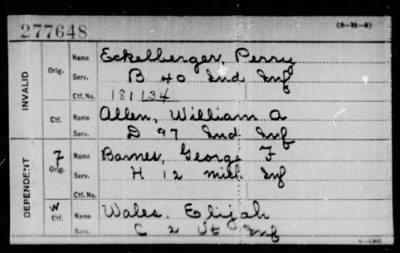 277648 (3-31-8)
INVALID
Orig. Name Eckelberger, Perry
Serv. B 40 Ind Inf
Ctf. No. 181134
Ctf. Name Allen, William A
Serv. D 97 Ind. Inf
DEPENDENT
F Orig. Name Barnes, George F
Serv. H 12 Mich Inf
Ctf. No.
W Ctf. Name Wales. Elijah
Serv. C 2 Vt Inf